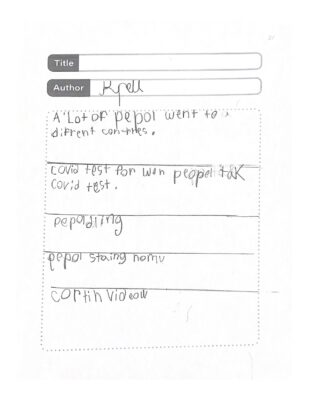 Title
Author Kpell
A Lot of pepol went to
diffrent contries.
covid test for wen peopel tak
covid test.
pepol diing
pepol staing home